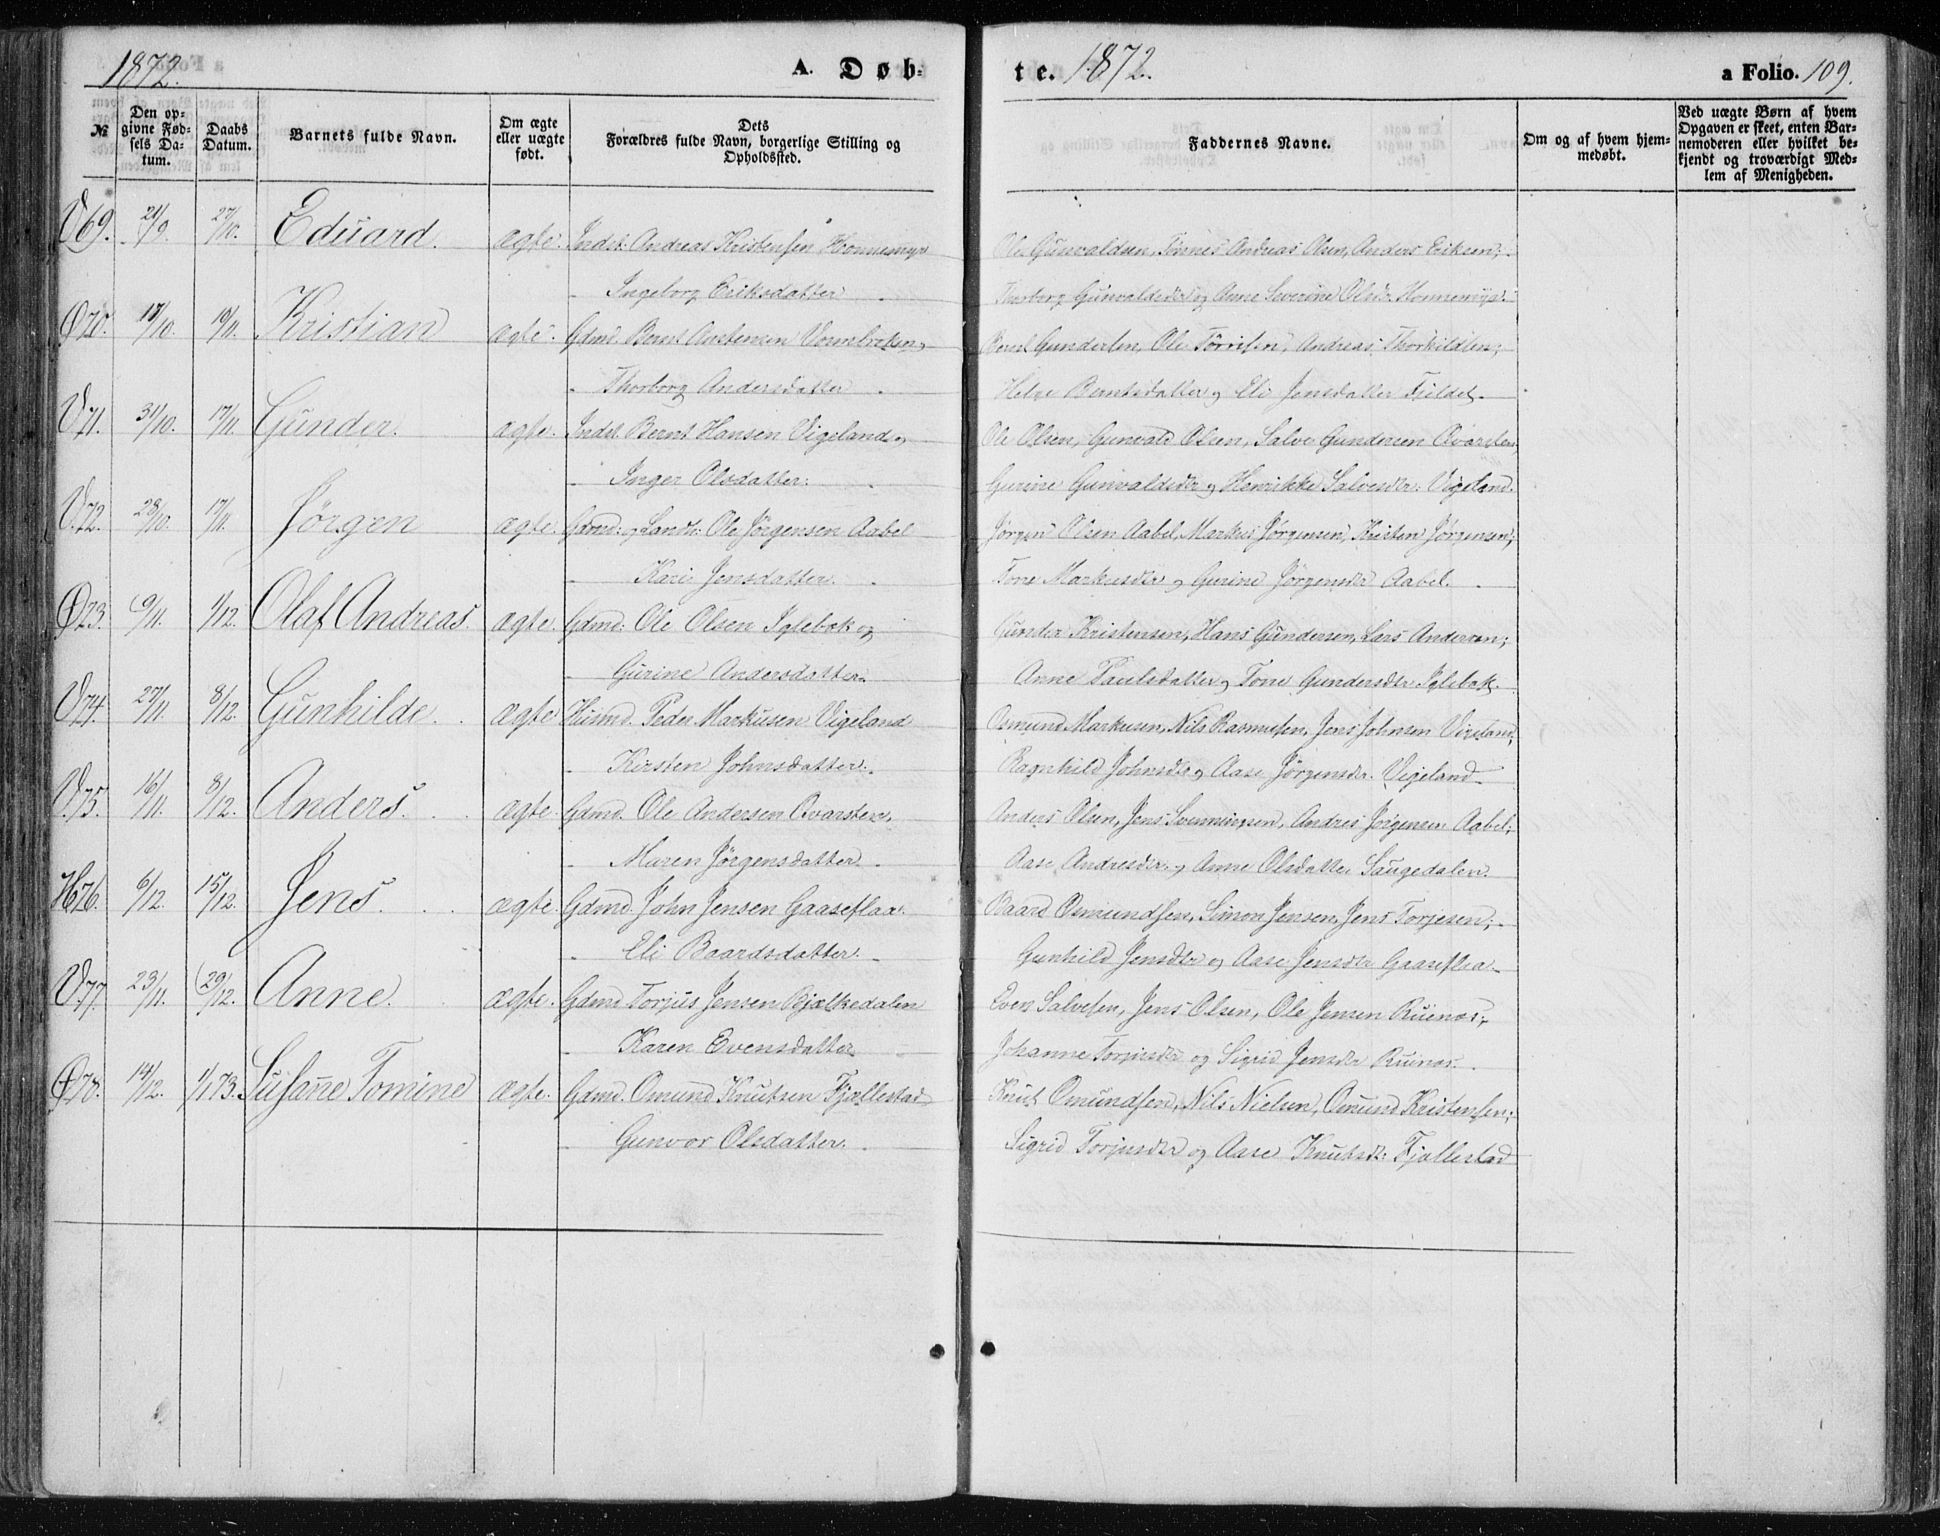 1872. A. Døb- te. 1872. a Folio. 109.
№ Den opgivne Fødsels Datum. Daabs Datum. Barnets fulde Navn. Om ægte eller uægte født. Dets Forældres fulde Navn, borgerlige Stilling og Opholdssted. Faddernes Navne. Om og af hvem hjemmedøbt. Ved uægte Børn af hvem Opgaven er skeet, enten Barnemoderen eller hvilket bekjendt og troværdigt Medlem af Menigheden.
V69. 21/9. 27/10. Eduard. ægte. Indst. Andreas Kristensen Honnemyr Ole Gunvaldsen, Tønnes Andreas Olsen, Anders Eriksen;
Ingeborg Eriksdatter Thorborg Gunvaldsdtr og Anne Severine Olsdtr Honnemyr.
Ø70. 17/10. 10/11. Kristian ægte. Gdmd. Bernt Austensen Vormbroken, Bernt Gundersen, Ole Tørrisen, Andreas Thorkildsen;
Thorborg Andersdatter Helge Berntsdatter og Eli Jensdatter Fjeldet.
V71. 31/10. 17/11. Gunder. ægte. Indst. Bernt Hansen Vigeland og Ole Olsen, Gunvald Olsen, Salve Gundersen Qvarsten,
Inger Olsdatter. Gurine Gunvaldsdtr og Henrikke Salvesdtr. Vigeland.
V72. 28/10. 17/11. Jørgen ægte. Gdmd. og Landh. Ole Jørgensen Aabel Jørgen Olsen Aabel, Markus Jørgensen, Kristen Jørgensen;
Kari Jensdatter. Tone Markusdtr og Gurine Jørgensdtr Aabel.
Ø73. 9/11. 1/12. Olaf Andreas. ægte. Gdmd. Ole Olsen Iglebæk og Gunder Kristensen, Hans Gundersen, Lars Andersen;
Gurine Andersdatter. Anne Paulsdatter og Tone Gundersdtr Iglebæk.
V74. 27/11. 8/12. Gunhilde. ægte Husmd. Peder Markusen Vigeland Osmund Markusen, Nils Rasmussen, Jens Johnsen Vigeland,
Kirsten Johnsdatter. Ragnhild Johnsdtr og Aase Jørgensdtr. Vigeland.
V.75. 16/11. 8/12. Anders. ægte. Gdmd. Ole Andersen Qvarsten, Anders Olsen, Jens Svenningsen, Andres Jørgensen Aabel;
Maren Jørgensdatter. Aase Andresdtr. og Anne Olsdatter Saugedalen.
H76. 6/12. 15/12. Jens. ægte. Gdmd. John Jensen Gaaseflaa. Baard Osmundsen, Simon Jensen, Jens Torjesen;
Eli Baardsdatter. Gunhild Jensdtr og Aase Jensdtr Gaaseflaa.
V77. 23/11. 29/12. Anne. ægte. Gdmd. Torjus Jensen Bjælkedalen Even Salvesen, Jens Olsen, Ole Jensen Ruenæs;
Karen Evensdatter Johanne Torjusdtr og Sigrid Jensdtr Ruinæs.
Ø78. 14/12. 1/1 73. Susanne Tomine ægte. Gdmd. Omund Knutsen Fjællestad Knut Omundsen, Nils Nielsen, Omund Kristensen;
Gunvor Olsdatter. Sigrid Torjusdtr og Aase Knutsdtr Fjællestad